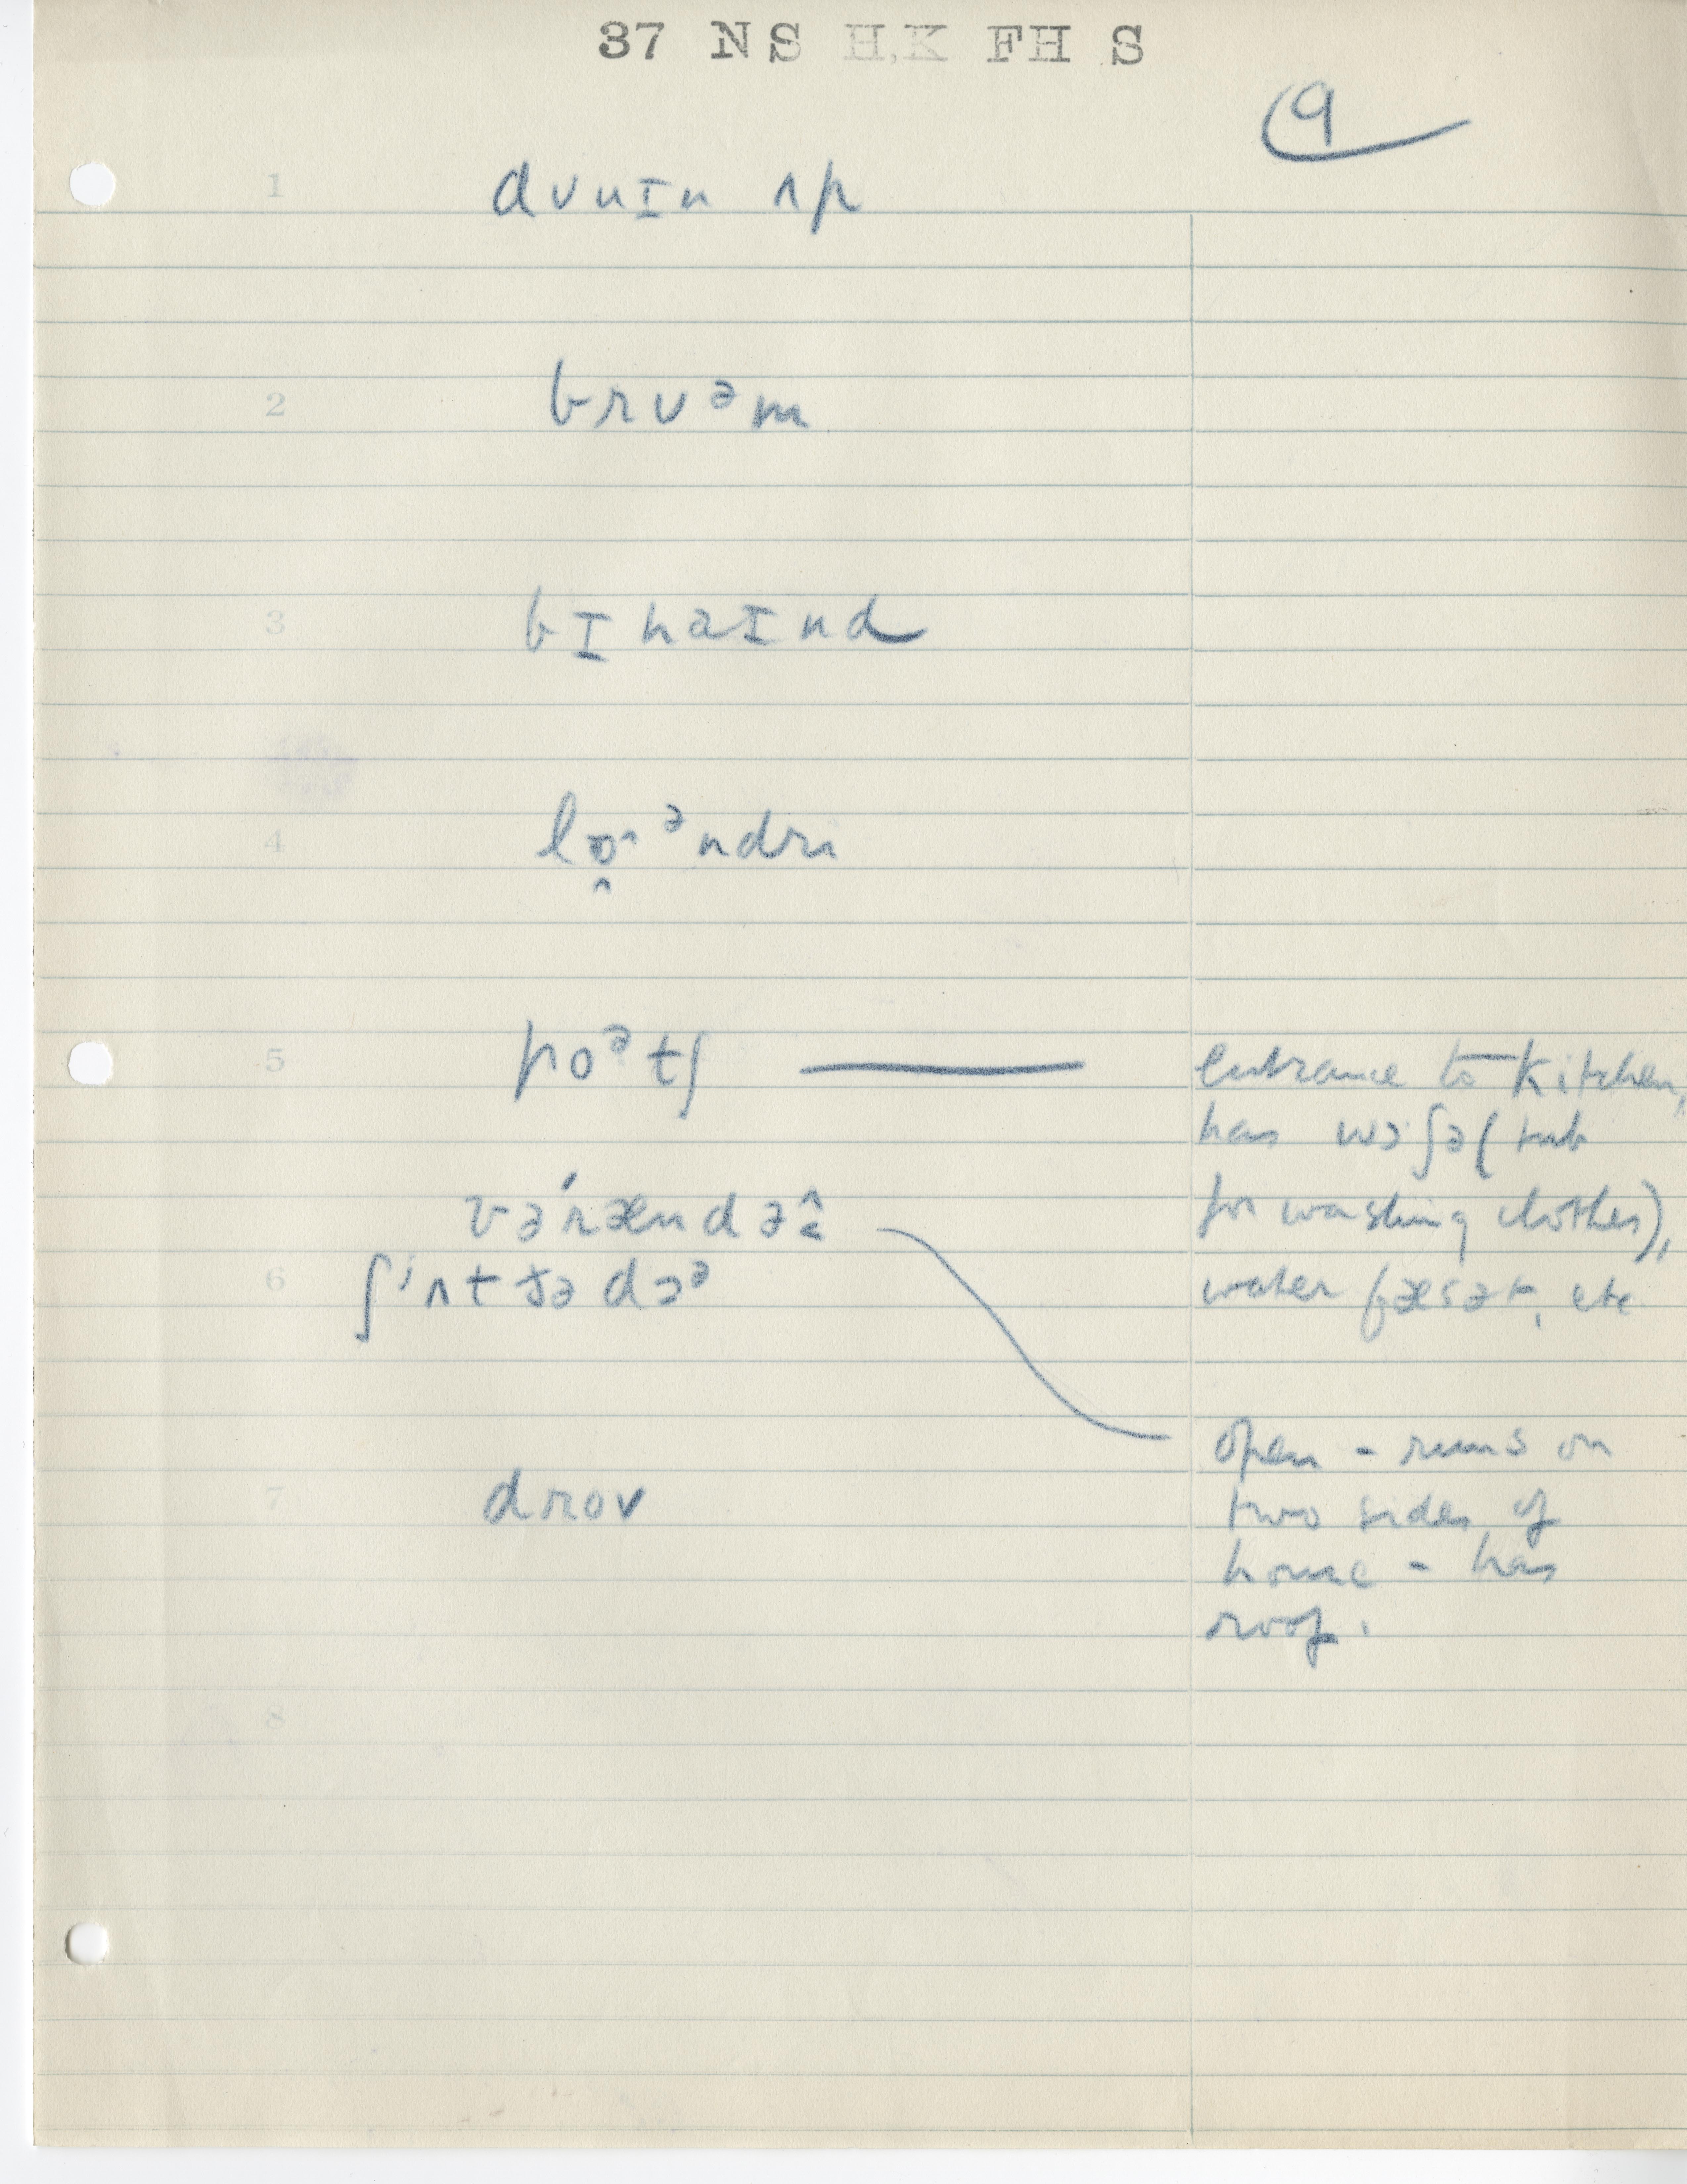 37 NS H,K FH S
9
1 dʊuɪn ʌp
2 brʊᵊm
3 bɪhaɪnd
4 lɒ̭^ᵊndri
5 poᵊtʃ — entrance to kitchen,
has wɔʃə (tub
for washing clothes),
water fæsət, etc
və́rændəː
6 ʃ'ʌt ðə dɔᵊ
open - runs on
two sides of
house - has
roof.
7 droʊ
8